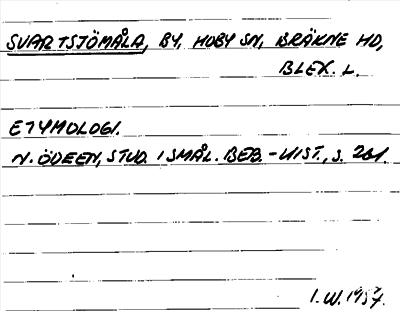 SVARTSJÖMÅLA, BY, HOBY SN, BRÄKNE HD,
BLEK. L.
ETYMOLOGI.
N. ÖDEEN, STUD. I SMÅL. BEB.-HIST., S. 261.
I.W. 1957.